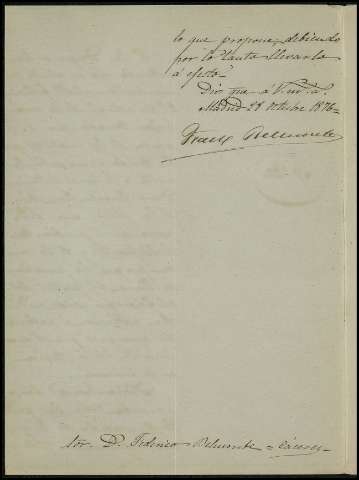 lo que propone, debiendo
por lo tanto llevarlo
á efecto.
Dios gue a V. m. a.
Madrid 28 octubre 1876=
Belmonte
Sor. D. Federico Belmonte = Cáceres=